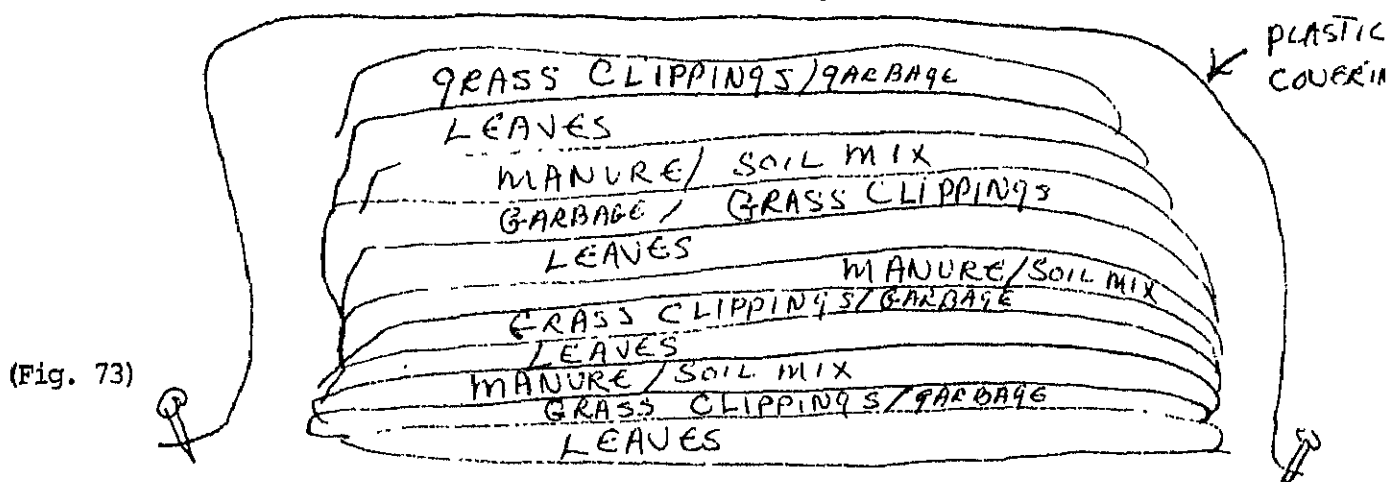 PLASTIC
COVERIN
GRASS CLIPPINGS/GARBAGE
LEAVES
MANURE/SOIL MIX
GARBAGE/GRASS CLIPPINGS
LEAVES
MANURE/SOIL MIX
GRASS CLIPPINGS/GARBAGE
LEAVES
MANURE/SOIL MIX
GRASS CLIPPINGS/GARBAGE
LEAVES
(Fig. 73)